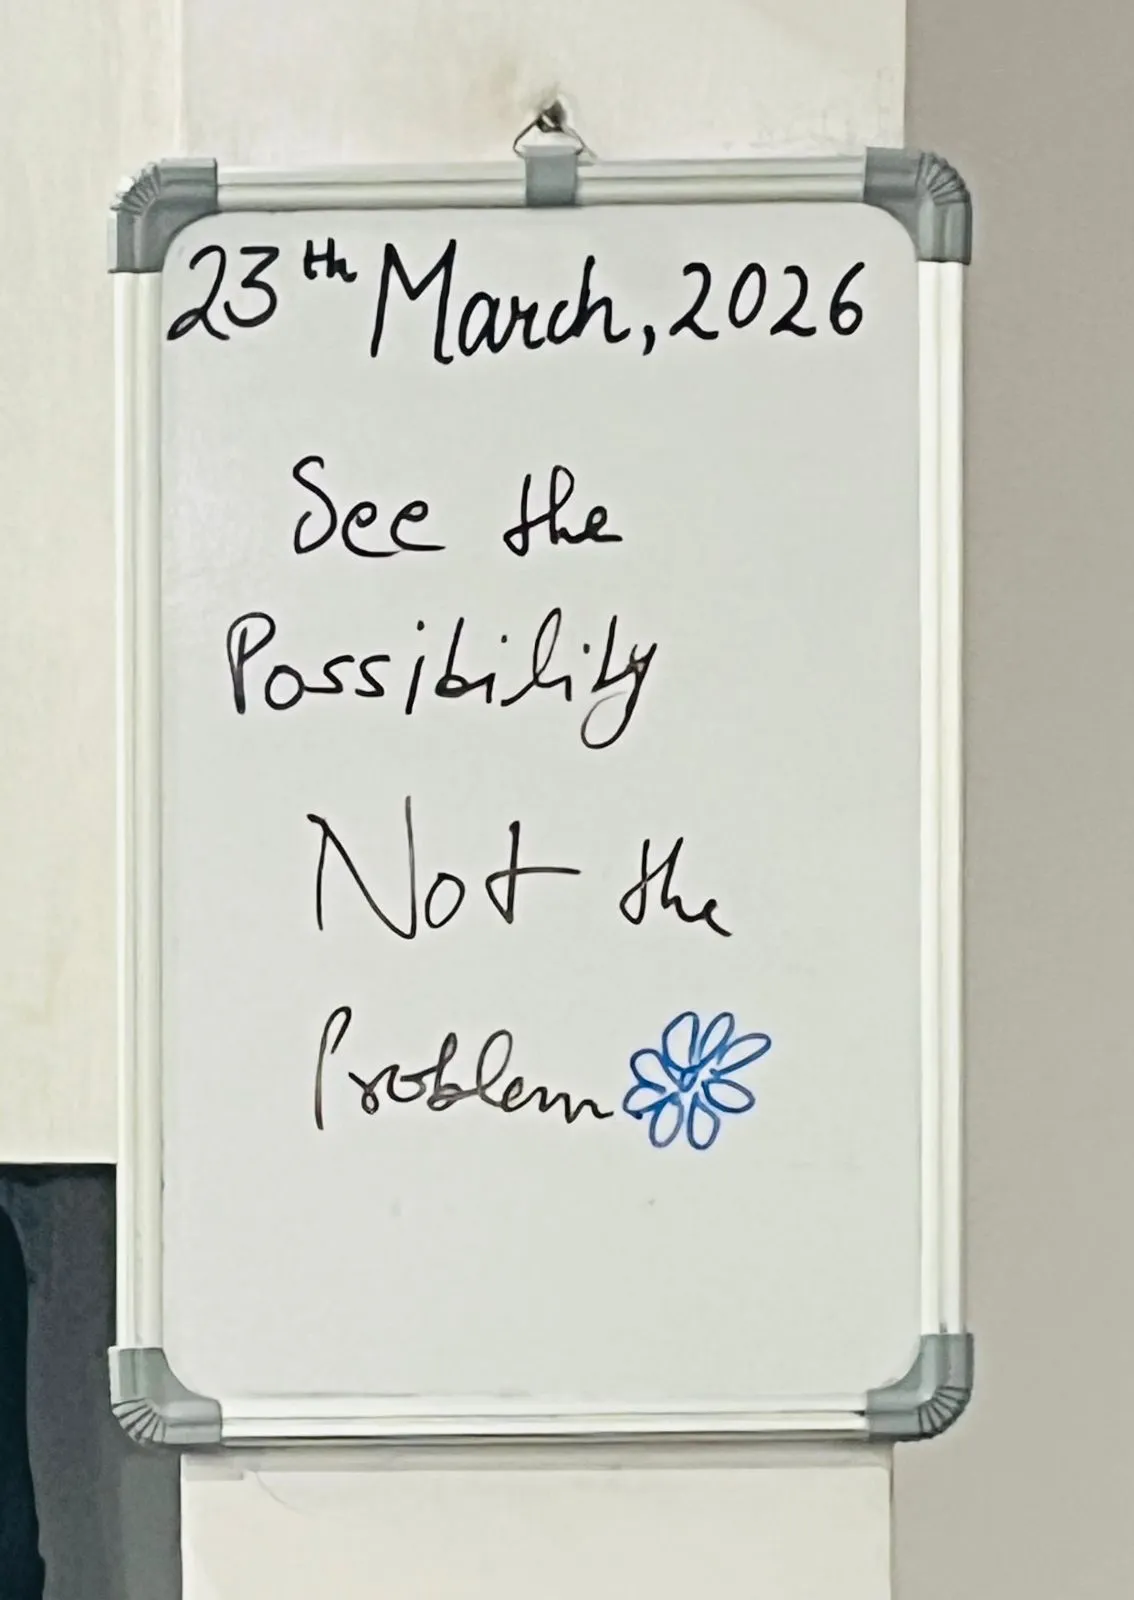 23th March, 2026
See the
Possibility
Not the
Problem